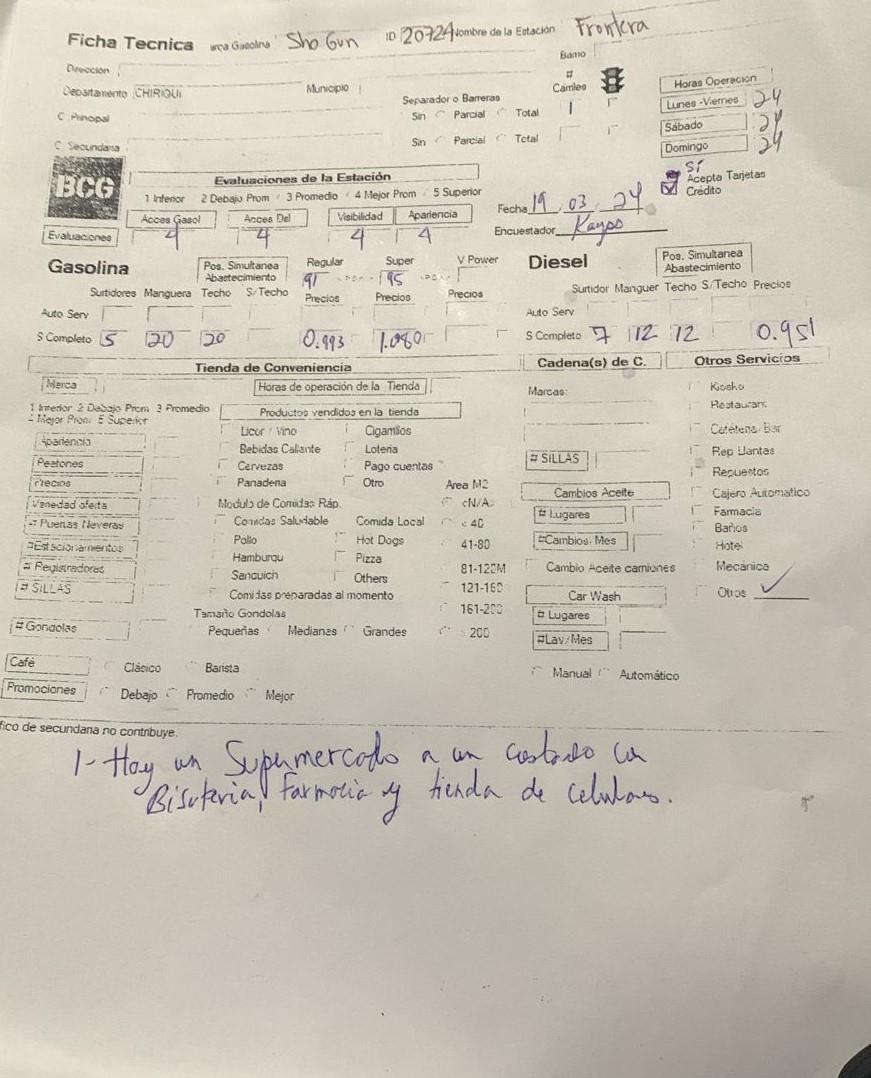 Ficha Tecnica arca Gasolina Sho Gun ID 20724 Nombre de la Estación Frontera
Direccion Barrio
Departamento CHIRIQUI Municipio Separador o Barreras # Carriles Horas Operacion
C Principal Sin Parcial Total 1 Lunes -Viernes 24
C. Secundaria Sin Parcial Total Sábado 24
Domingo 24
BCG Evaluaciones de la Estación SÍ Acepta Tarjetas Crédito
1 Inferior 2 Debajo Prom 3 Promedio 4 Mejor Prom 5 Superior
Acces Gasol Acces Del Visibilidad Apariencia Fecha 19 03 24
Evaluaciones 4 4 4 4 Encuestador
Gasolina Pos. Simultanea Abastecimiento Regular 91 Super 95 V Power Diesel Pos. Simultanea Abastecimiento
Surtidores Manguera Techo S/Techo Precios Precios Precios Surtidor Manguer Techo S/Techo Precios
Auto Serv Auto Serv
S Completo 5 20 20 0.993 1.080 S Completo 7 12 12 0.951
Tienda de Conveniencia Cadena(s) de C. Otros Servicios
Marca Horas de operación de la Tienda Marcas: Kiosko
1 Inferior 2 Debajo Prom 3 Promedio Productos vendidos en la tienda Restaurant
4 Mejor Prom 5 Superior Licor / Vino Cigarrillos Cafeteria/Bar
Apariencia Bebidas Caliente Loteria Rep Llantas
Peatones Cervezas Pago cuentas # SILLAS Repuestos
Precios Panaderia Otro Area M2 Cambios Aceite Cajero Automático
Variedad oferta Modulo de Comidas Ráp. <N/A> # Lugares Farmacia
# Puertas Neveras Comidas Saludable Comida Local < 40 Baños
#Estacionamientos Pollo Hot Dogs 41-80 #Cambios/Mes Hotel
# Registradoras Hamburgu Pizza 81-120M Cambio Aceite camiones Mecánica
# SILLAS Sanguich Others 121-160 Car Wash Otros ✓
Comidas preparadas al momento
Tamaño Gondolas 161-200 # Lugares
# Gondolas Pequeñas Medianas Grandes > 200 #Lav/Mes
Café Clásico Barista Manual Automático
Promociones Debajo Promedio Mejor
fico de secundaria no contribuye.
1- Hay un Supermercado a un costado con
Bisuteria, Farmacia y tienda de celulares.